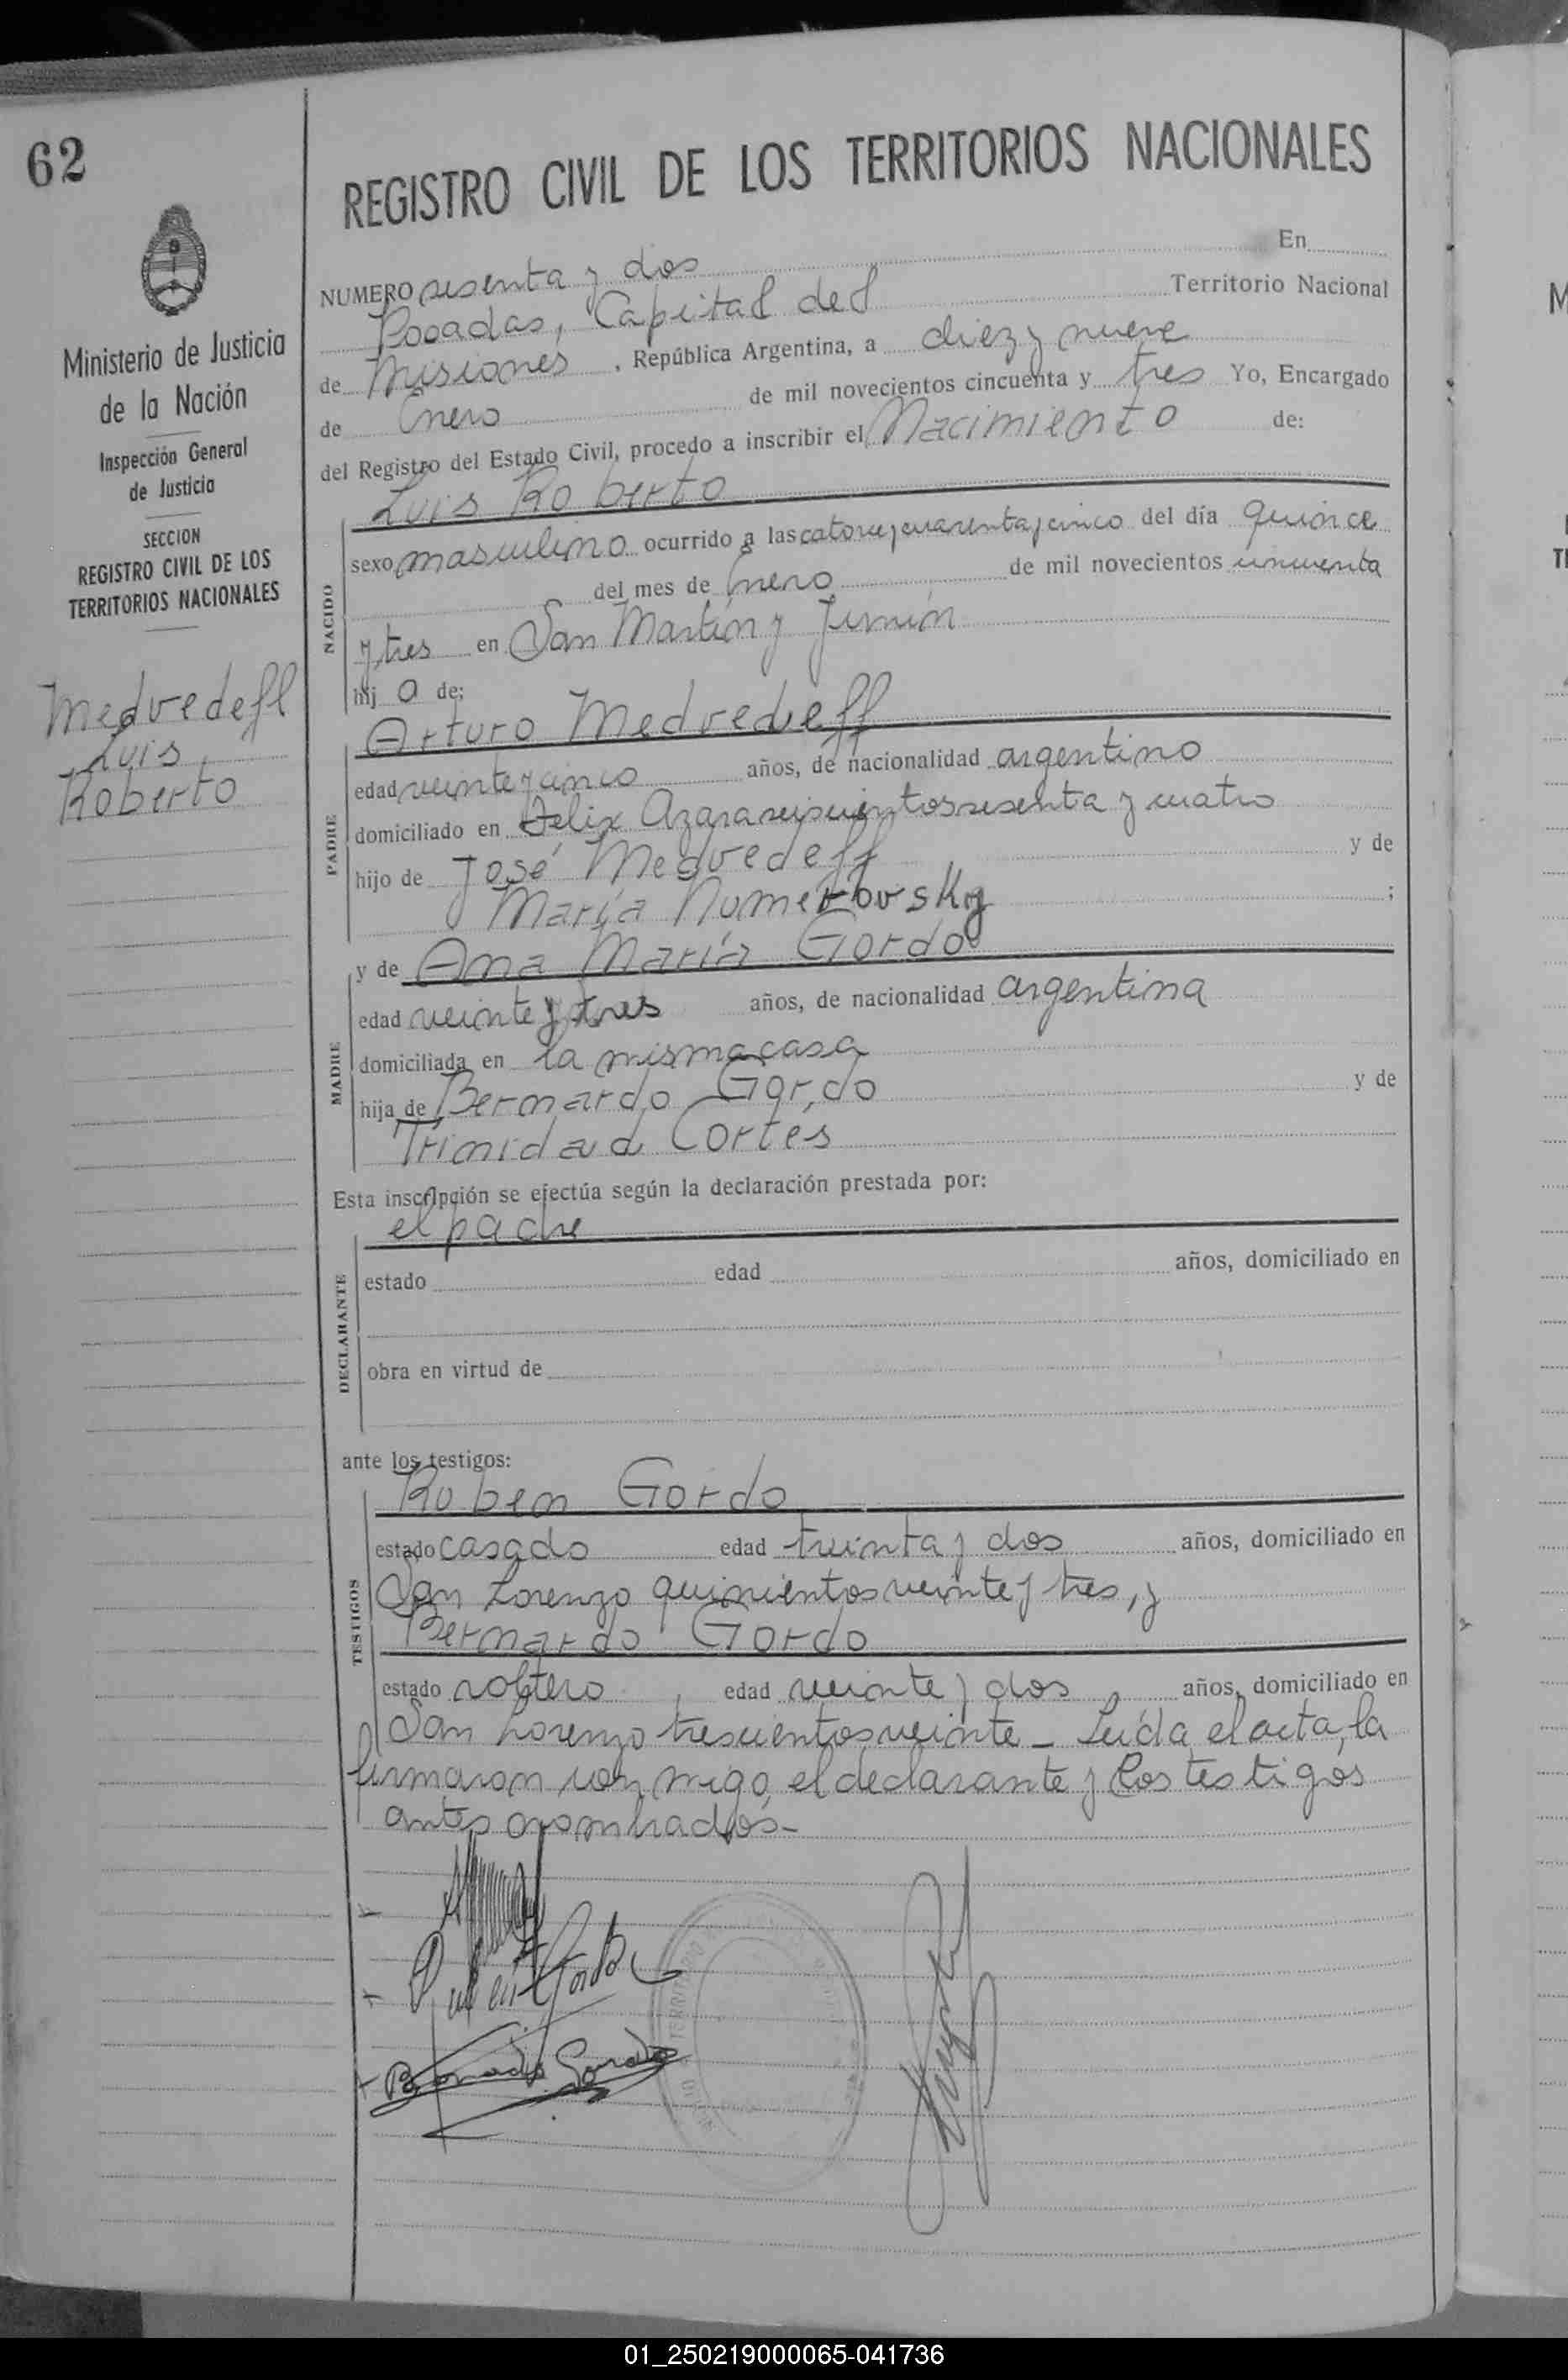 62
Ministerio de Justicia
de la Nación
Inspección General
de Justicia
SECCION
REGISTRO CIVIL DE LOS
TERRITORIOS NACIONALES
Medvedeff
Luis
Roberto
REGISTRO CIVIL DE LOS TERRITORIOS NACIONALES
NUMERO sesenta y dos En
Posadas, Capital del Territorio Nacional
de Misiones, República Argentina, a diez y nueve
de Enero de mil novecientos cincuenta y tres Yo, Encargado
del Registro del Estado Civil, procedo a inscribir el Nacimiento de:
Luis Roberto
NACIDO
sexo masculino ocurrido a las catorce y cuarenta y cinco del día quince
del mes de Enero de mil novecientos cincuenta
y tres en San Martín y Junín
hijo de:
Arturo Medvedeff
PADRE
edad veinte y cinco años, de nacionalidad argentino
domiciliado en Félix Azara seiscientos sesenta y cuatro
hijo de José Medvedeff y de
María ;
y de Ana María Gordo
MADRE
edad veinte y tres años, de nacionalidad argentina
domiciliada en la misma casa
hija de Bernardo Gordo y de
Trinidad Cortés
Esta inscripción se efectúa según la declaración prestada por:
el padre
DECLARANTE
estado edad años, domiciliado en
obra en virtud de
ante los testigos:
Ruben Gordo
TESTIGOS
estado casado edad treinta y dos años, domiciliado en
San Lorenzo quinientos veinte y tres, y
Bernardo Gordo
estado soltero, edad veinte y dos, años, domiciliado en
San Lorenzo trescientos veinte - Leída el acta, la
firmaron con migo, el declarante y los testigos
antes nombrados-
Ruben Gordo
Bernardo Gordo
01_250219000065-041736